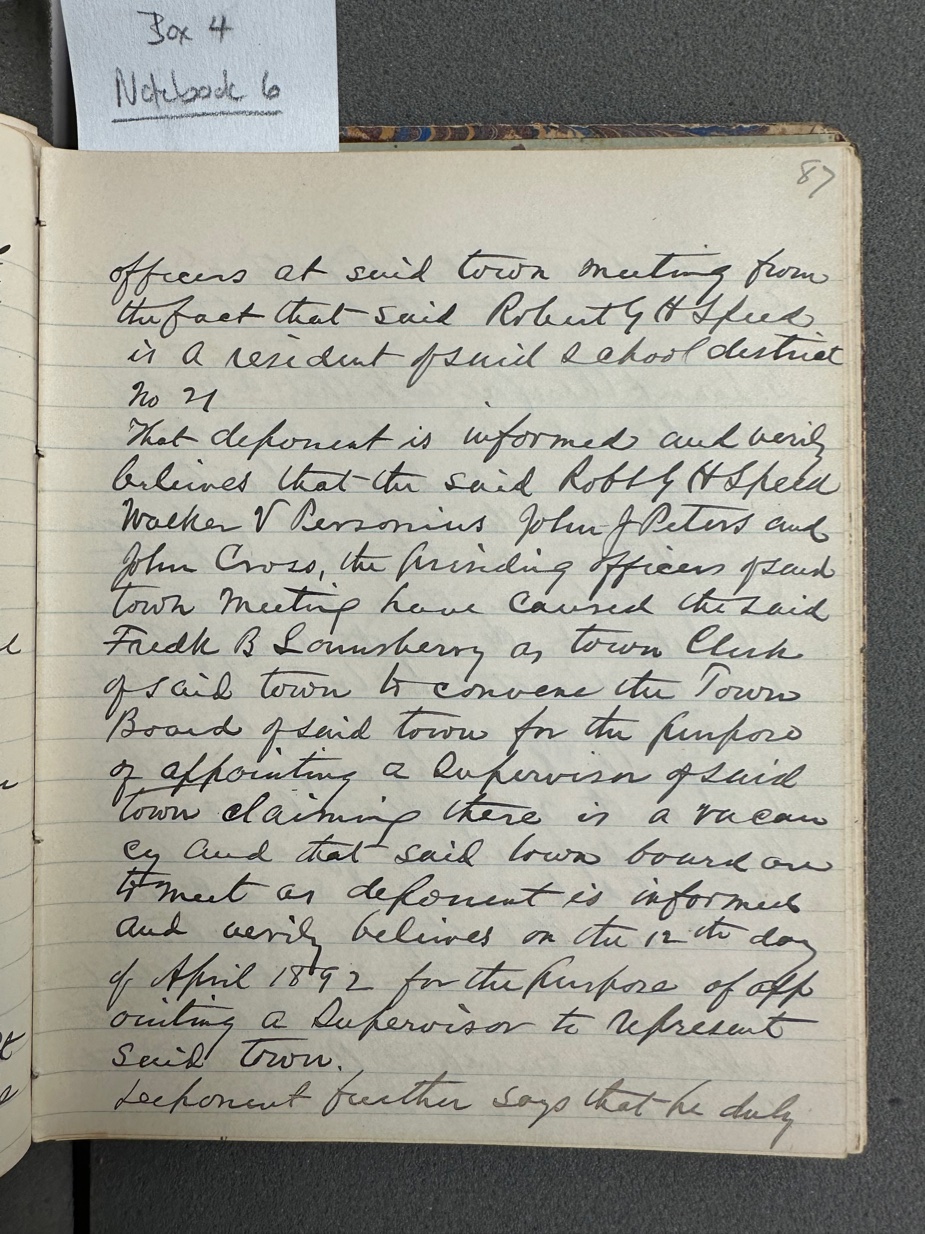 Box 4
Notebook 6
87
officers at said town meeting from
the fact that said Robert G H Speed
is a resident of said School district
No 21
That deponent is informed and verily
believes that the said Robt G H Speed
Walker V Personius John J Peters and
John Cross, the presiding officers of said
town meeting have caused the said
Fredk B Lounsberry as town Clerk
of said town to convene the Town
Board of said town for the purpose
of appointing a Supervisor of said
town claiming there is a vacan
cy and that said town board are
to meet as deponent is informed
and verily believes on the 12th day
of April 1892 for the purpose of app
ointing a Supervisor to represent
said town.
Deponent further says that he duly